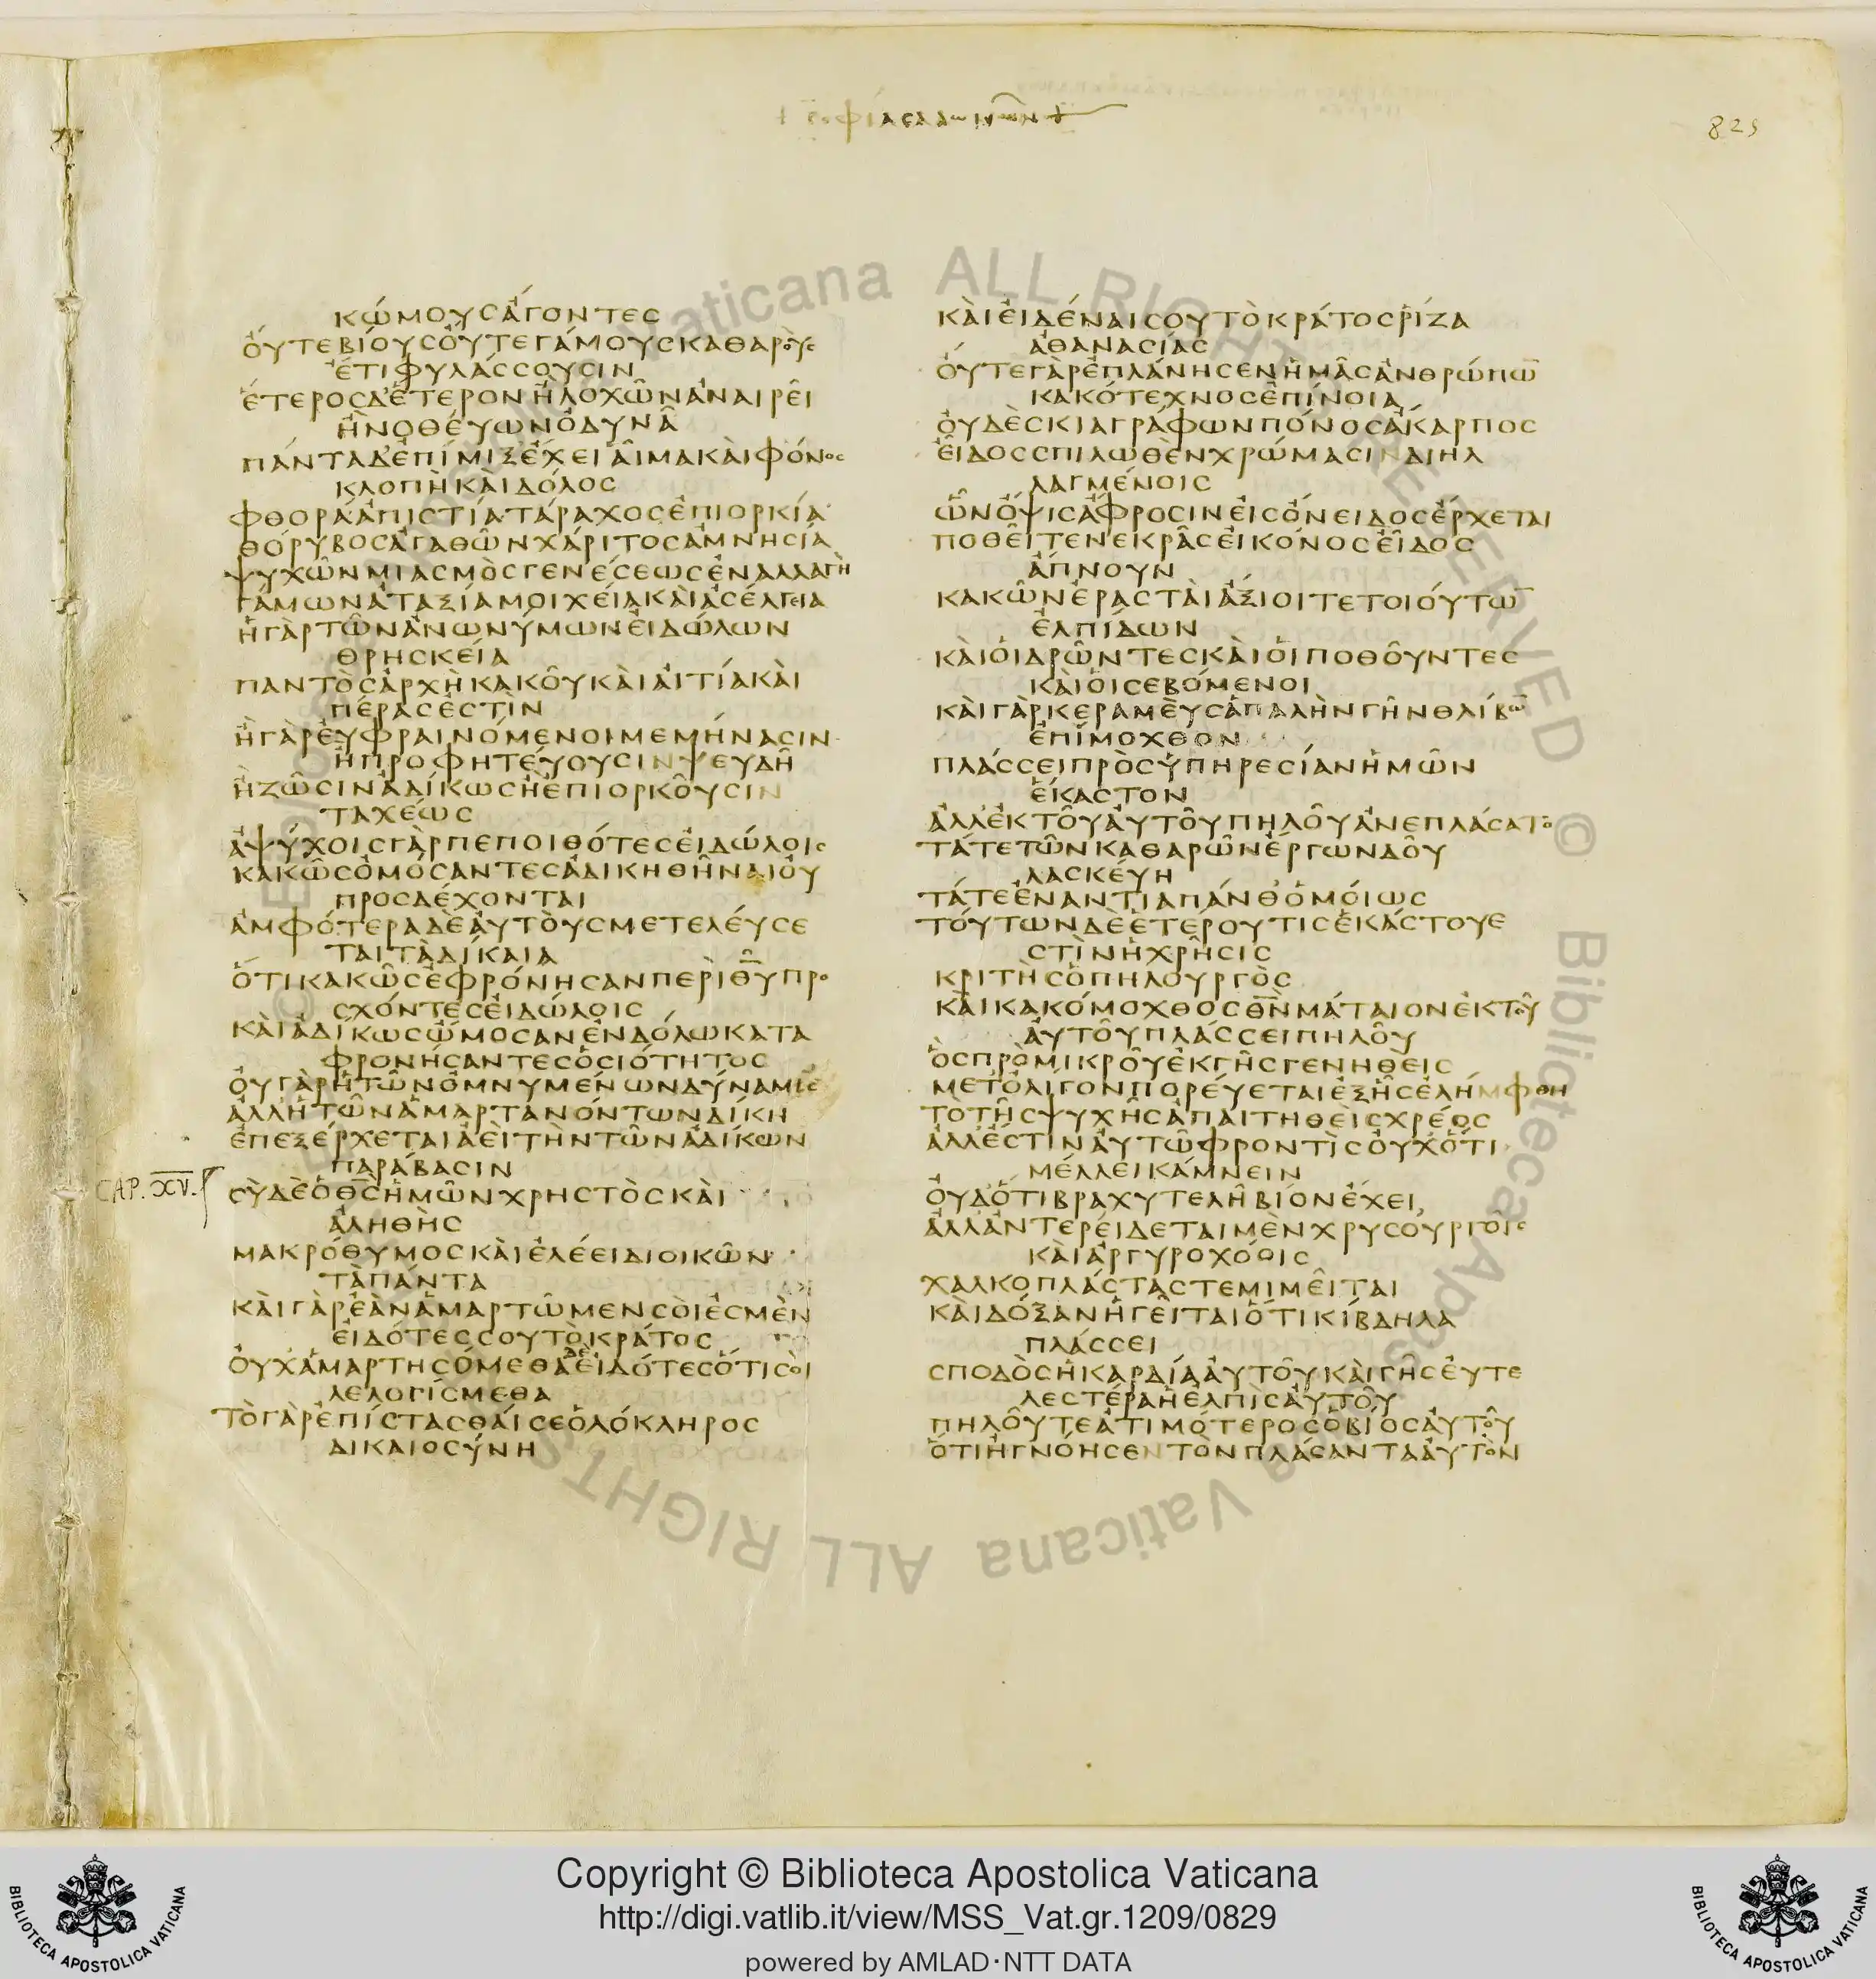 + σοφίας αλωμῶν +
825
κώμουςἄγοντες
ὄυτεβίουςὄυτεγάμουςκαθαρὸυς
ἔτιφυλάσσουσιν
ἕτεροςδἕτερονἢλοχῶνἀναιρεῖ
ἢνοθέυωνὀδυνᾶ
πάνταδἐπίμιξἔχειἇιμακὰιφόνος
κλοπὴκὰιδόλος
φθοράἀπιστίατάραχοςἐπιορκία
θόρυβοςἀγαθῶνχάριτοςἀμνησία
ψυχῶνμιασμὸςγενέσεωςἐναλλαγὴ
γάμωνἀταξίαμοιχέιακὰιἀσέλγεια
ἡγὰρτῶνἀνωνύμωνἐιδώλων
θρησκεία
παντὸςἀρχὴκακοῦκὰιἀιτίακὰι
πέραςἐστὶν
ἢγὰρἐυφραινόμενοιμεμήνασιν
ἢπροφητέυουσινψευδῆ
ἢζῶσινἀδίκωςἢἐπιορκοῦσιν
ταχέως
ἀψύχοιςγὰρπεποιθότεςἐιδώλοις
κακῶςὀμόσαντεςἀδικηθῆναιὀυ
προσδέχονται
ἀμφότεραδὲἀυτὸυςμετελέυσε
ταιτὰδίκαια
ὅτικακῶςἐφρόνησανπερὶθ̅υ̅προ
σχόντεςἐιδώλοις
κὰιἀδίκωςὤμοσανἐνδόλωκατα
φρονήσαντεςὁσιότητος
ὀυγὰρἡτῶνὀμνυμένωνδύναμις
ἀλλἡτῶνἁμαρτανόντωνδίκη
ἐπεξέρχεταιἀὲιτὴντῶνἀδίκων
παράβασιν
CAP. XV.
σὺδὲὁθ̅ς̅ἡμῶνχρηστὸςκὰι
ἀληθὴς
μακρόθυμοςκὰιἐλέειδιοικῶν
τὰπάντα
κὰιγὰρἐὰνἁμαρτῶμενσόιἐσμὲν
ἐιδότεςσουτὸκράτος
ὀυχἁμαρτησόμεθαδὲἐιδότεςὅτισὸι
λελογίσμεθα
τὸγὰρἐπίστασθάισεὁλόκληρος
δικαιοσύνη
κὰιἐιδέναισουτὸκράτοςῥίζα
ἀθανασίας
ὄυτεγὰρἐπλάνησενἡμᾶςἀνθρώπω̅
κακότεχνοςἐπίνοια
ὀυδὲσκιαγράφωνπόνοςἄκαρπος
ἔιδοςσπιλωθὲνχρώμασινδιηλ
λαγμένοις
ὧνὄψιςἄφροσινἐιςὄνειδοςἔρχεται
ποθεῖτενεκρᾶςἐικόνοςἔιδος
ἄπνουν
κακῶνἐρασταὶἄξιοιτετοιούτω̅
ἐλπίδων
κὰιὁιδρῶντεςκὰιὁιποθοῦντες
κὰιὁισεβόμενοι
κὰιγὰρκεραμὲυςἁπαλὴνγῆνθλίβω̅
ἐπίμοχθον
πλάσσειπρὸςὑπηρεσίανἡμῶν
ἕκαστον
ἀλλἐκτοῦἀυτοῦπηλοῦἀνεπλάσατο
τάτετῶνκαθαρῶνἔργωνδοῦ
λασκέυη
τάτεἐναντίαπάνθὁμοίως
τούτωνδὲἑτέρουτιςἑκάστουἐ
στὶνἡχρῆσις
κριτὴςὁπηλουργὸς
κὰικακόμοχθοςθ̅ν̅μάταιονἐκτοῦ
ἀυτοῦπλάσσειπηλοῦ
ὃςπρὸμικροῦἐκγῆςγενηθεὶς
μετὀλίγονπορέυεταιἐξῆςἐλήμφθη
τοτῆςψυχῆςἀπαιτηθεὶςχρέος
ἀλλἔστινἀυτῶφροντὶςὀυχὅτι
μέλλεικάμνειν
ὀυδὅτιβραχυτελῆβίονἔχει
ἀλλἀντερέιδεταιμὲνχρυσουργοῖς
κὰιἀργυροχόοις
χαλκοπλάσταςτεμιμεῖται
κὰιδόξανἡγεῖταιὅτικίβδηλα
πλάσσει
σποδὸςἡκαρδίαἀυτοῦκὰιγῆςἐυτε
λεστέραἡἐλπὶςἀυτοῦ
πηλοῦτεἀτιμότεροςὁβίοςἀυτοῦ
ὅτιἠγνόησεντὸνπλάσανταἀυτὸν
Copyright © Biblioteca Apostolica Vaticana
http://digi.vatlib.it/view/MSS_Vat.gr.1209/0829
powered by AMLAD·NTT DATA
BIBLIOTECA APOSTOLICA VATICANA
BIBLIOTECA APOSTOLICA VATICANA